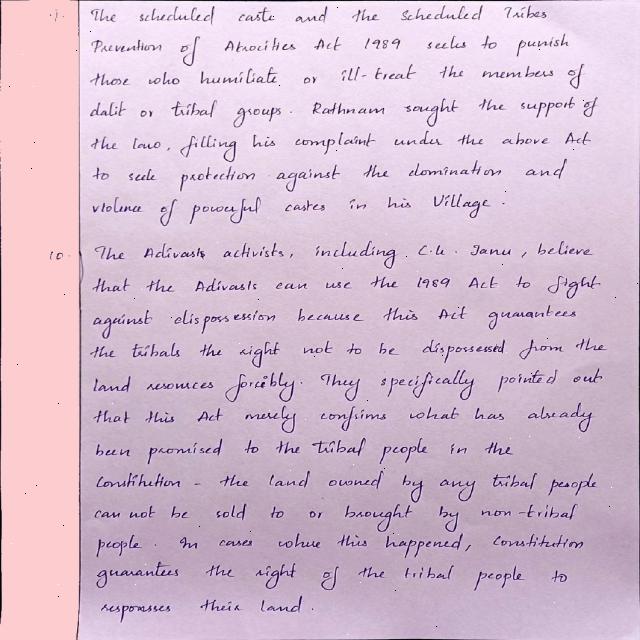 The scheduled caste and the Scheduled Tribes
Prevention of Atrocities Act 1989 seeks to punish
those who humiliate or ill-treat the members of
dalit or tribal groups. Rathnam sought the support of
the law, filling his complaint under the above Act
to seek protection against the domination and
violence of powerful castes in his Village.
10. The Adivasis activists, including C.K. Janu, believe
that the Adivasis can use the 1989 Act to fight
against dispossession because this Act guarantees
the tribals the right not to be dispossessed from the
land resources forcibly. They specifically pointed out
that this Act merely confirms what has already
been promised to the tribal people in the
Constitution - the land owned by any tribal people
can not be sold to or brought by non-tribal
people. In cases where this happened, Constitution
guarantees the right of the tribal people to
responsses their land.